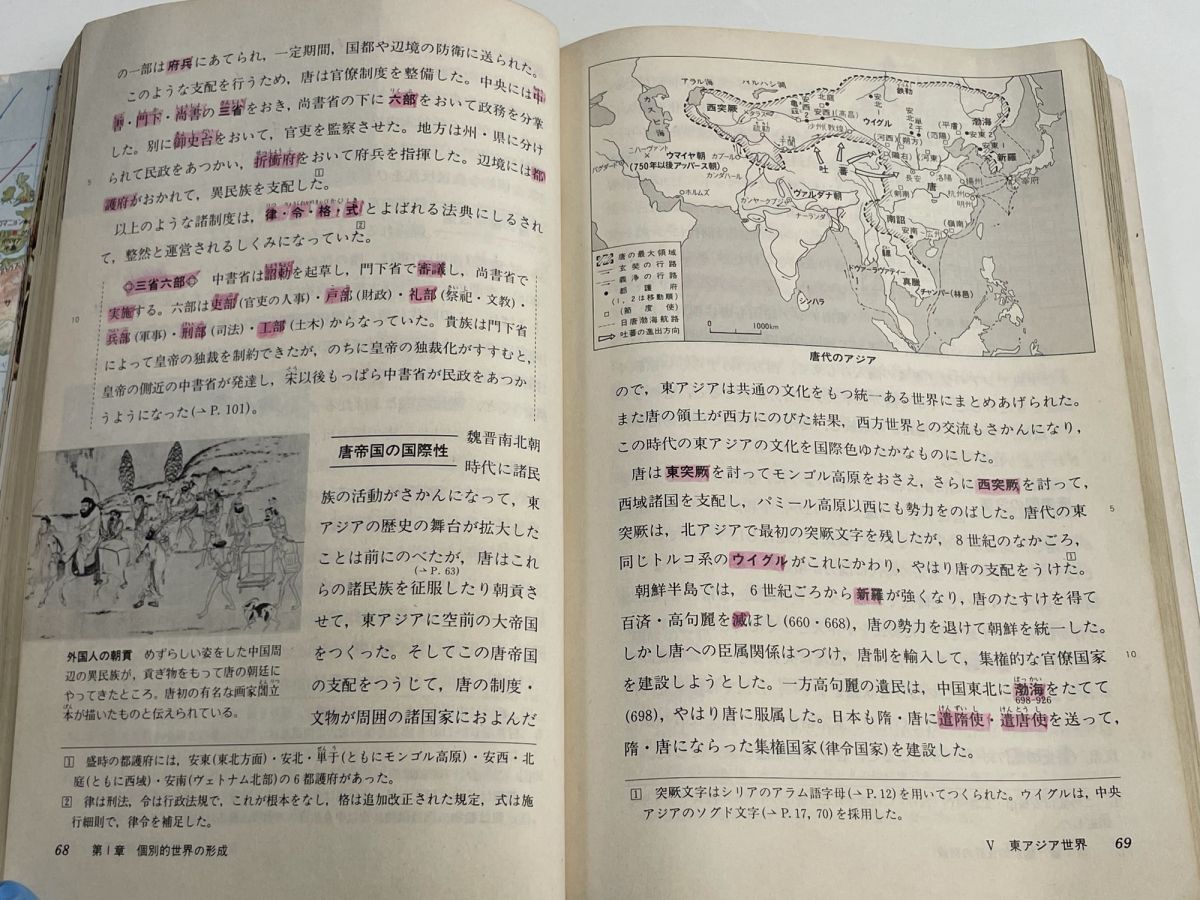 の一部は府兵にあてられ，一定期間，国都や辺境の防衛に送られた。
このような支配を行うため，唐は官僚制度を整備した。中央には中
書・門下・尚書の三省をおき，尚書省の下に六部をおいて政務を分掌
した。別に御史台をおいて，官吏を監察させた。地方は州・県に分け
られて民政をあつかい，折衝府をおいて府兵を指揮した。辺境には都
5
護府がおかれて，異民族を支配した。
1
以上のような諸制度は，律・令・格・式とよばれる法典にしるされ
2
て，整然と運営されるしくみになっていた。
三省六部 中書省は詔勅を起草し，門下省で審議し，尚書省で
実施する。六部は吏部(官吏の人事)・戸部(財政)・礼部(祭祀・文教)・
10
兵部(軍事)・刑部(司法)・工部(土木)からなっていた。貴族は門下省
によって皇帝の独裁を制約できたが，のちに皇帝の独裁化がすすむと，
皇帝の側近の中書省が発達し，宋以後もっぱら中書省が民政をあつか
うようになった(→P. 101)。
唐帝国の国際性
魏晋南北朝
時代に諸民
族の活動がさかんになって，東
アジアの歴史の舞台が拡大した
ことは前にのべたが，唐はこれ
(→P. 63)
らの諸民族を征服したり朝貢さ
せて，東アジアに空前の大帝国
をつくった。そしてこの唐帝国
の支配をつうじて，唐の制度・
文物が周囲の諸国家におよんだ
外国人の朝貢 めずらしい姿をした中国周
辺の異民族が，貢ぎ物をもって唐の朝廷に
やってきたところ。唐初の有名な画家閻立
本が描いたものと伝えられている。
1 盛時の都護府には，安東(東北方面)・安北・単于(ともにモンゴル高原)・安西・北
庭(ともに西域)・安南(ヴェトナム北部)の6都護府があった。
2 律は刑法，令は行政法規で，これが根本をなし，格は追加改正された規定，式は施
行細則で，律令を補足した。
68 第1章 個別的世界の形成
アラル海
バルハシ湖
西突厥
タラス
亀茲
安西2
北庭
安西1(高昌)
沙州(敦煌)
疏勒
于闐
鉄勒
安北
ウイグル
単于
(平盧)
(范陽)
渤海
安東2
安東1
新羅
(河西)
(朔方)
(隴右)
(河東)
長安
洛陽
唐
揚州
杭州
明州
大宰府
(剣南)
カスピ海
ニハーヴァント
バグダード
ウマイヤ朝
(750年以後アッバース朝)
カブール
カンダハール
ホルムズ
カンヤークブジャ
ヴァルダナ朝
ナーランダ
吐蕃
南詔
安南
広州
(嶺南)
驃
ドヴァーラヴァティー
真臘
チャンパー(林邑)
シンハラ
唐の最大領域
玄奘の行路
義浄の行路
都護府
(1，2は移動順)
(節度使)
日唐渤海航路
吐蕃の進出方向
0 1000km
唐代のアジア
ので，東アジアは共通の文化をもつ統一ある世界にまとめあげられた。
また唐の領土が西方にのびた結果，西方世界との交流もさかんになり，
この時代の東アジアの文化を国際色ゆたかなものにした。
唐は東突厥を討ってモンゴル高原をおさえ，さらに西突厥を討って，
西域諸国を支配し，パミール高原以西にも勢力をのばした。唐代の東
5
突厥は，北アジアで最初の突厥文字を残したが，8世紀のなかごろ，
1
同じトルコ系のウイグルがこれにかわり，やはり唐の支配をうけた。
朝鮮半島では，6世紀ごろから新羅が強くなり，唐のたすけを得て
百済・高句麗を滅ぼし(660・668)，唐の勢力を退けて朝鮮を統一した。
しかし唐への臣属関係はつづけ，唐制を輸入して，集権的な官僚国家
10
を建設しようとした。一方高句麗の遺民は，中国東北に渤海をたてて
698-926
(698)，やはり唐に服属した。日本も隋・唐に遣隋使・遣唐使を送って，
隋・唐にならった集権国家(律令国家)を建設した。
1 突厥文字はシリアのアラム語字母(→P. 12)を用いてつくられた。ウイグルは，中央
アジアのソグド文字(→P. 17, 70)を採用した。
V 東アジア世界 69